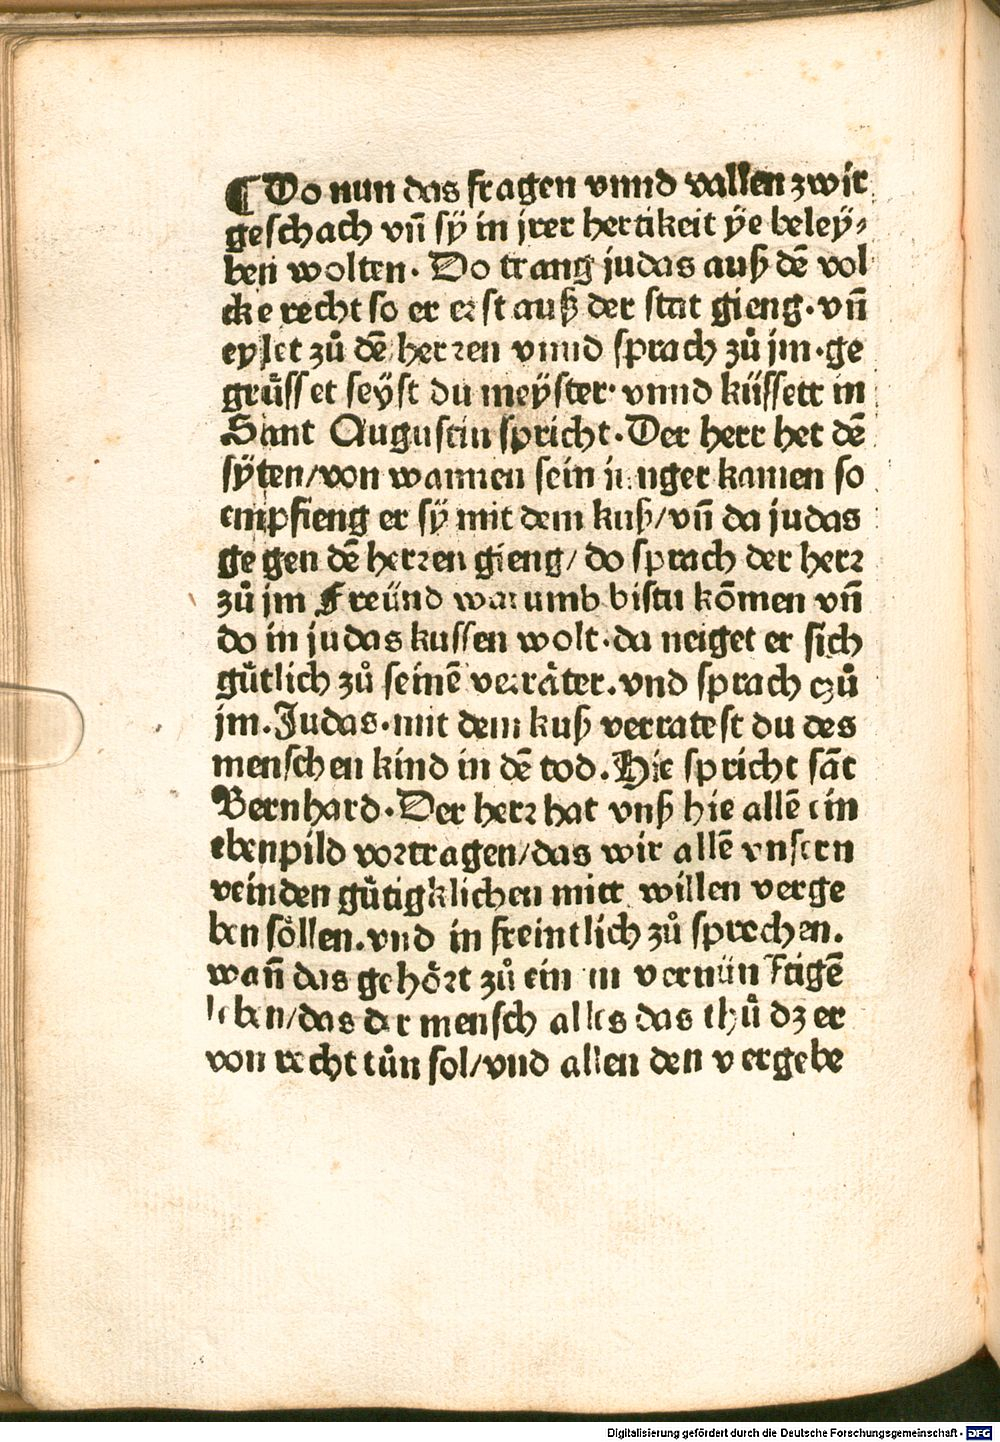 ¶ Do nun das fragen vnnd vallen zwir
geschach vñ sÿ in jrer hertikeit ÿe beleÿ⸗
ben wolten. Do trang judas auß dē vol
cke recht so er erst auß der stat gieng. vñ
eylet zuͦ dē herren vnnd sprach zuͦ jm. ge
gruͤsset seÿst du meÿster. vnnd küssett in
Sant Augustin spricht. Der herr het dē
sÿten/von wannen sein junger kamen so
empfieng er sÿ mit dem kuß/vñ da judas
gegen dē herren gieng/do sprach der herr
zuͦ jm Freünd warumb bistu kōmen vñ
do in judas kussen wolt. da neiget er sich
guͤtlich zuͦ seinē verräter. vnd sprach czuͦ
jm. Judas. mit dem kuß verratest du des
menschen kind in dē tod. Hie spricht sāt
Bernhard. Der herr hat vnß hie allē ein
ebenpild vortragen/das wir allē vnsern
veinden guͤtigklichen mitt willen verge
ben soͤllen. vnd in freintlich zuͦ sprechen.
wañ das gehoͤrt zuͦ einem vernünftigē
leben/das der mensch alles das thuͦ dz er
von recht tuͦn sol/vnd allen den vergebe
Digitalisierung gefördert durch die Deutsche Forschungsgemeinschaft - DFG